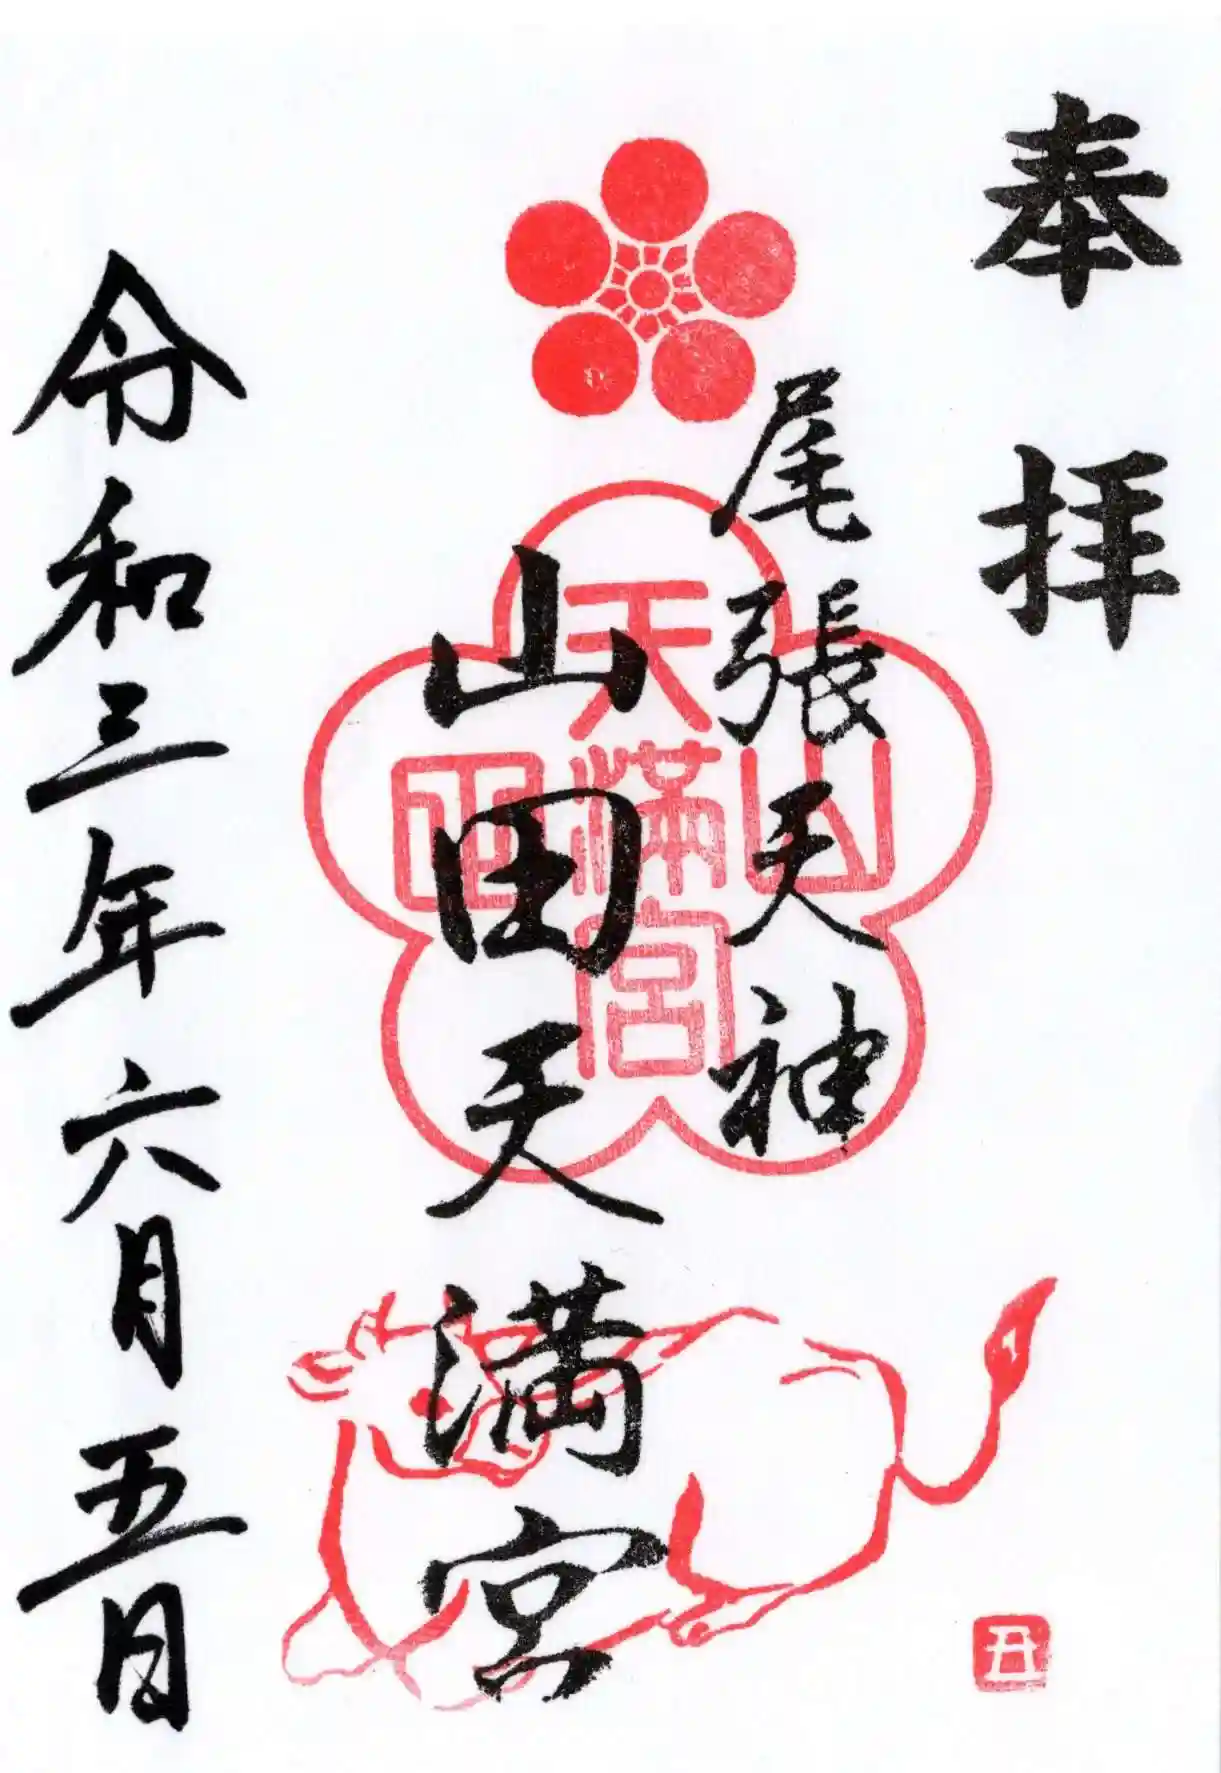 奉拝
尾張天神
山田天満宮
令和三年六月五日
天満宮
山
丑